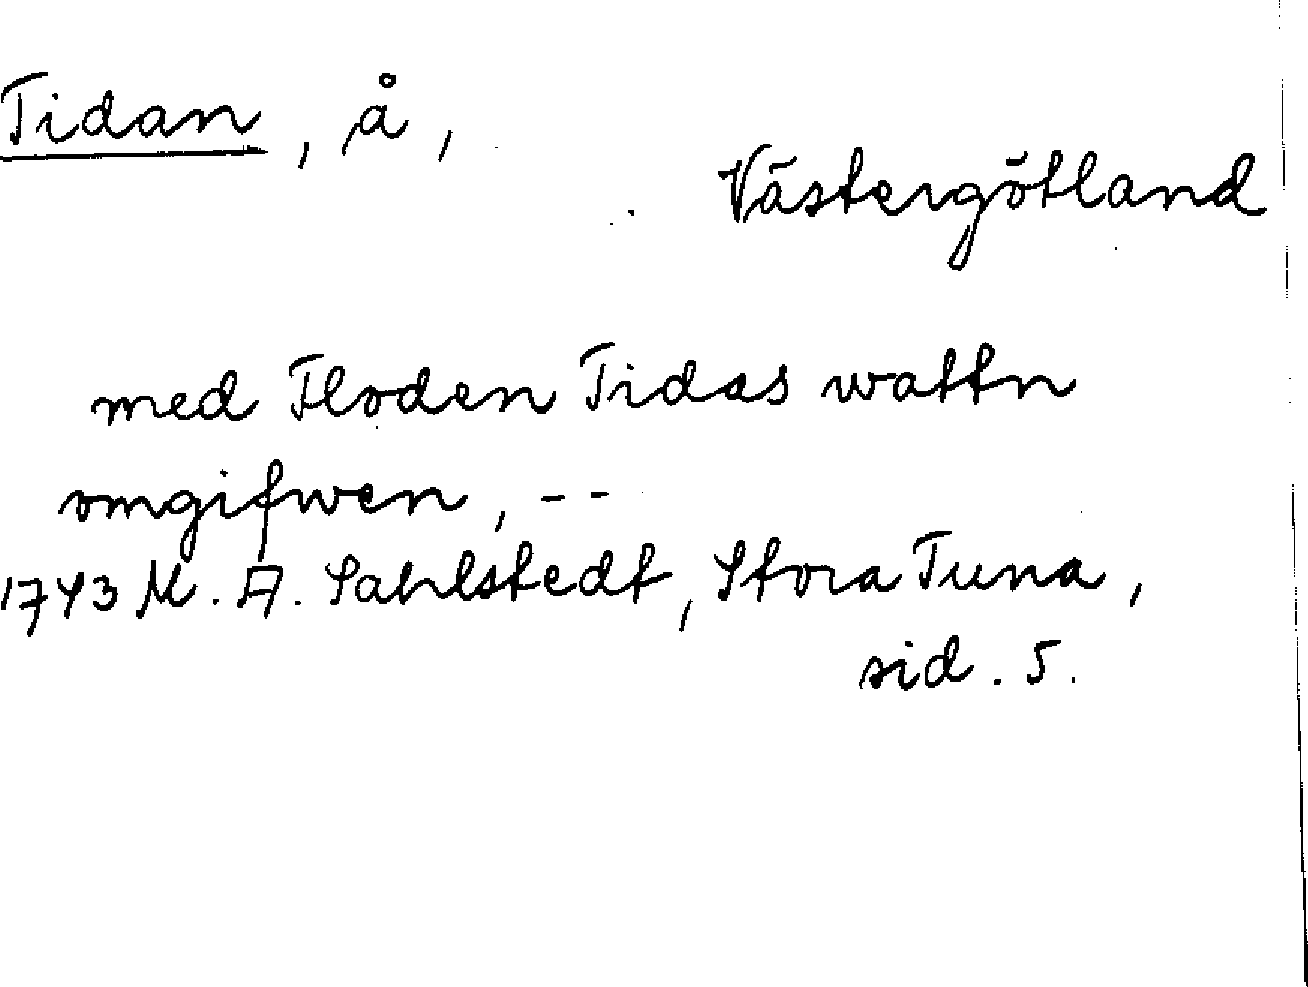 Tidan, å,
Västergötland
med Floden Tidas wattn
omgifwen, --
1743 M. A. Sahlstedt, Stora Tuna,
sid. 5.